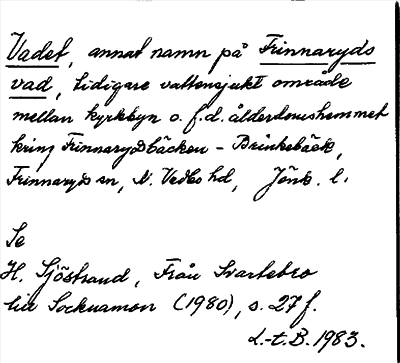 Vadet, annat namn på Frinnaryds
vad, tidigare vattensjukt område
mellan kyrkbyn o. f.d. ålderdomshemmet
kring Frinnarydbäcken - Brinkebäck,
Frinnaryds sn, N. Vedbo hd, Jönk. l.
Se
H. Sjöstrand, Från Svartebro
till Socknamon (1980), s. 27 f.
L.-t. B. 1983.